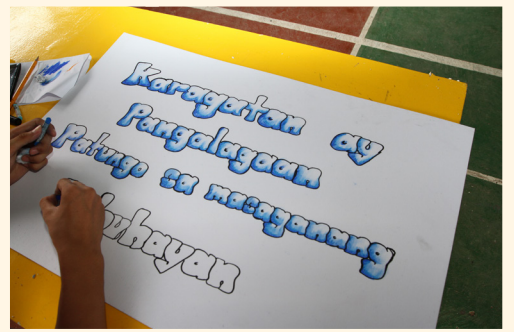 Karagatan ay
Pangalagaan
Patungo sa masaganang
buhayan